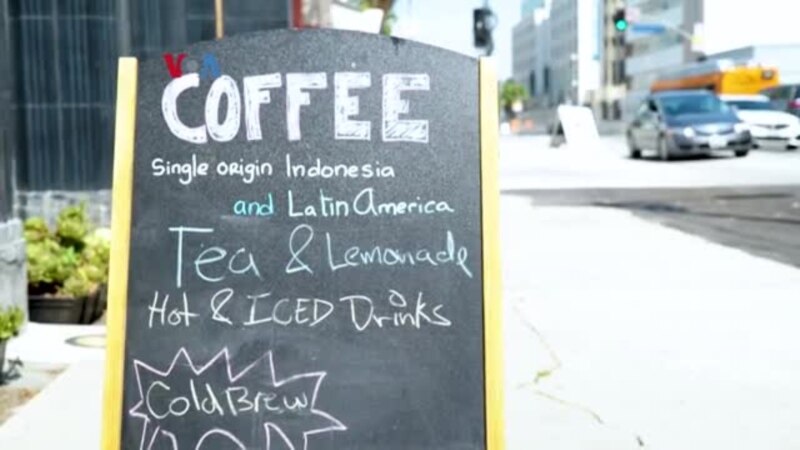 VOA
COFFEE
Single origin Indonesia
and Latin America
Tea & Lemonade
Hot & ICED Drinks
Cold Brew